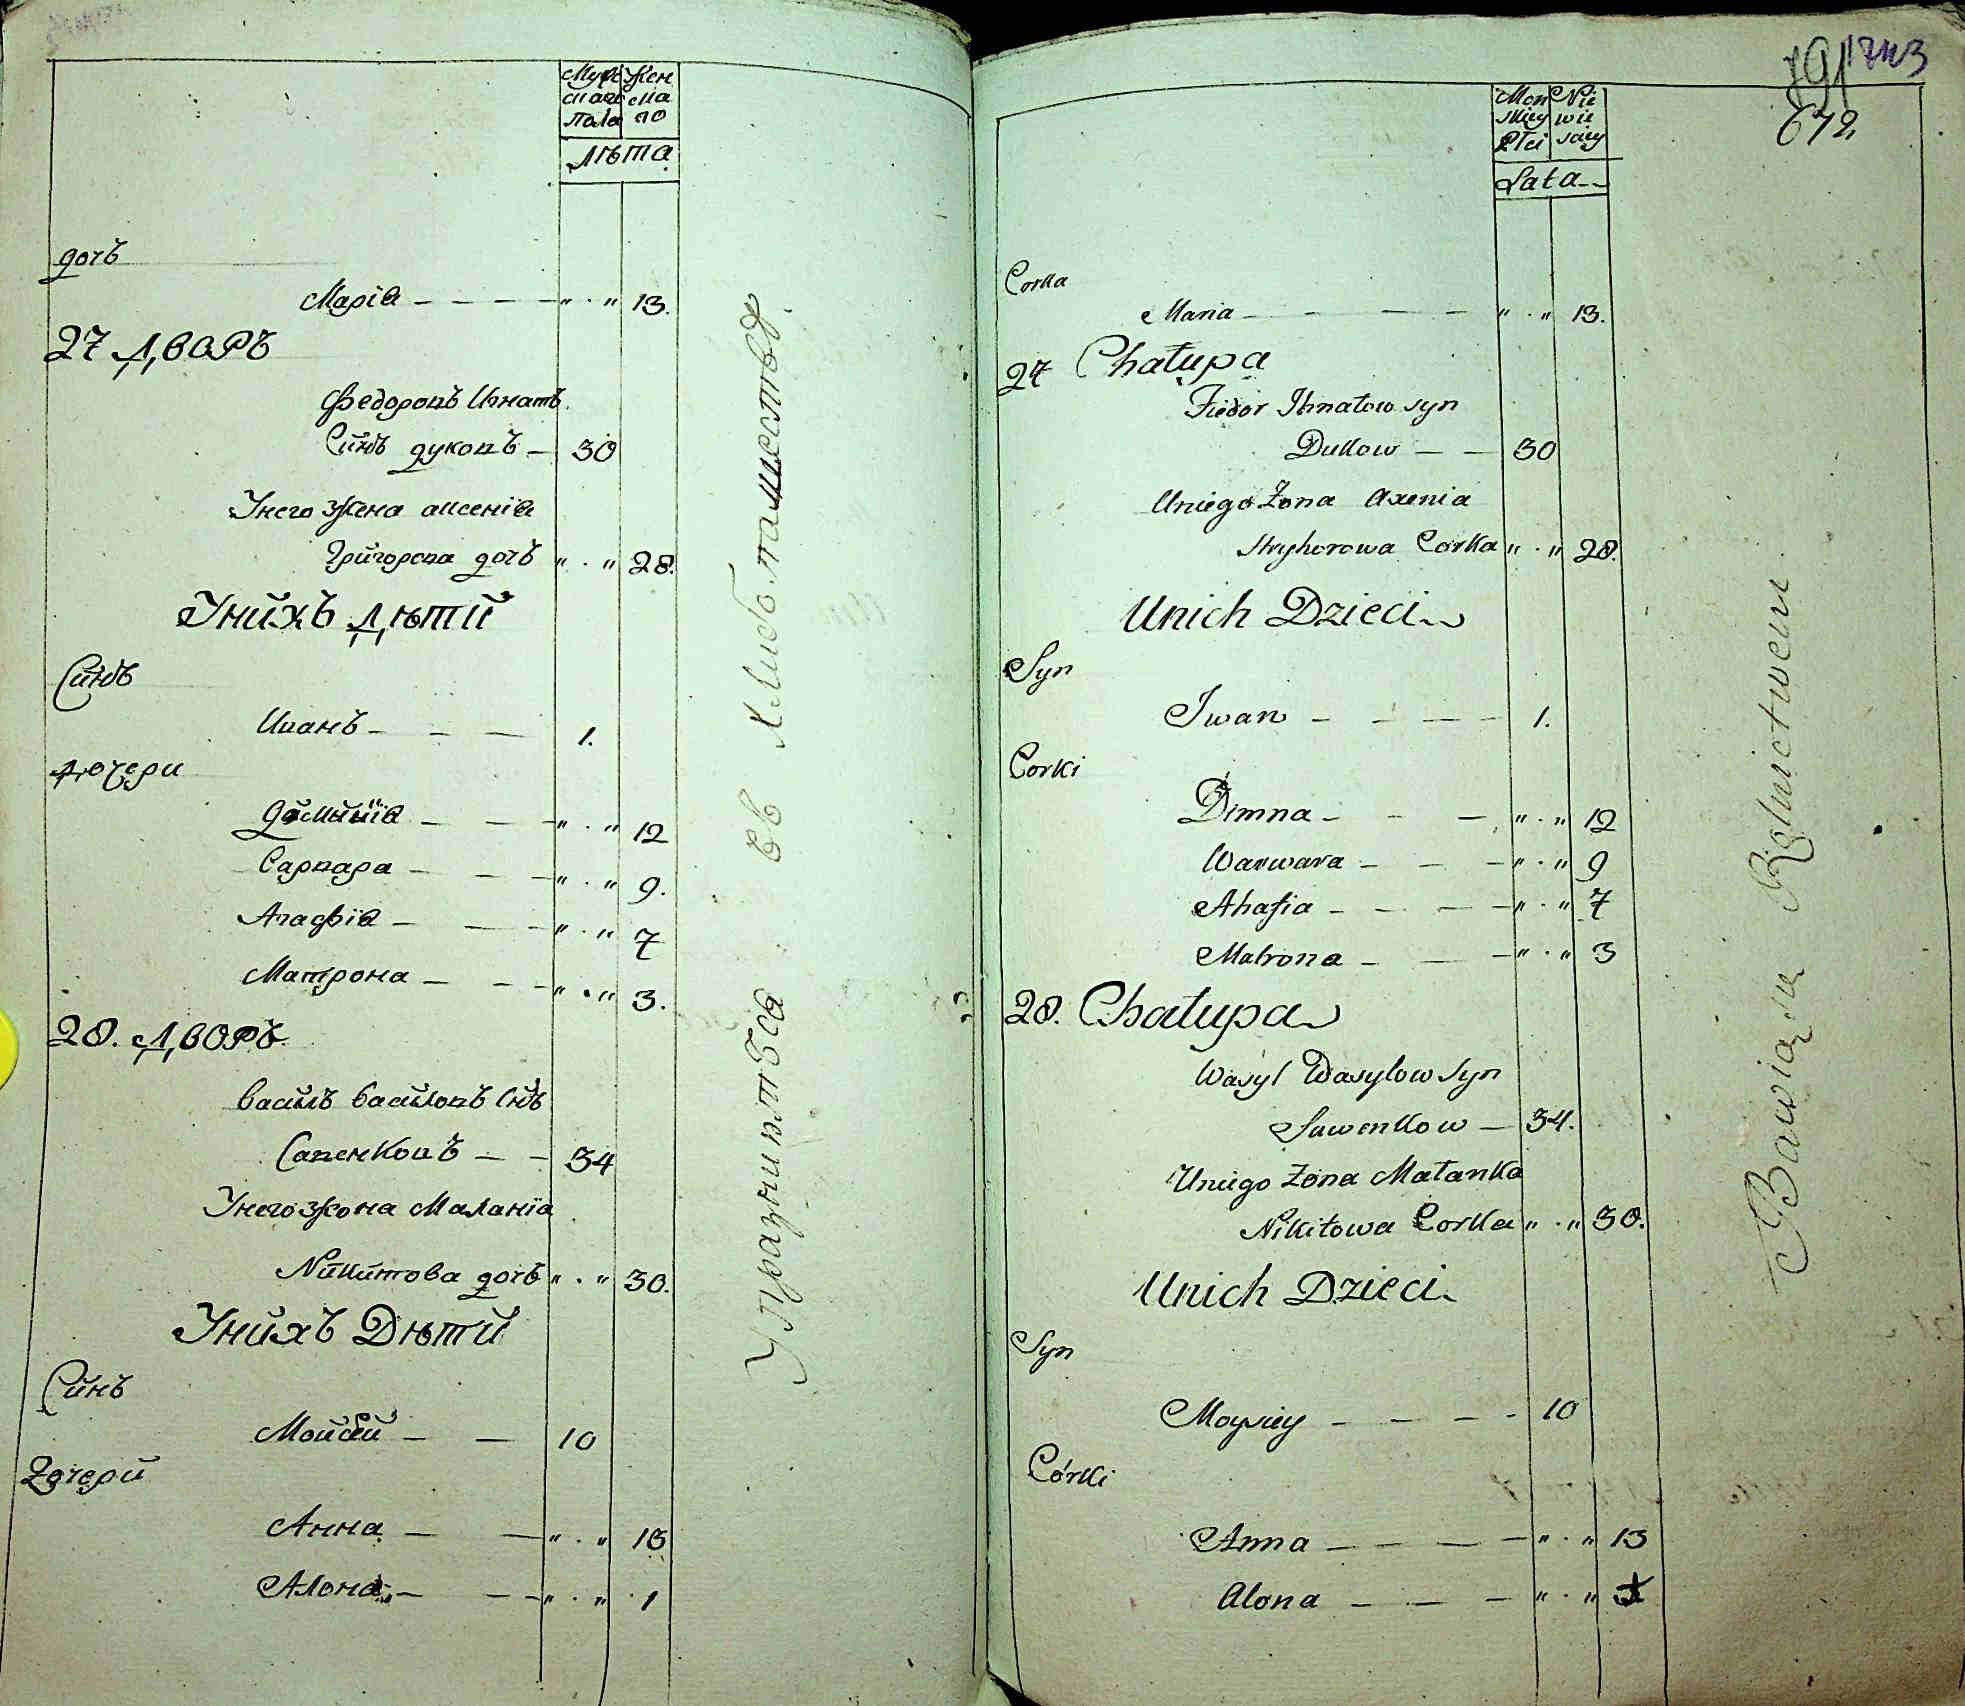 Муж Жен
скаго ска
пола го
лѣта
дочъ
Марїя — — — — „ · „ 13.
27 Дворъ
Федоровъ Игнатъ
Синъ Дуковъ — 30
Унего Жена аксенїя
Григорова дочъ „ · „ 28.
Унйхъ Дѣтй
Синъ
Иванъ — — — 1.
Дочери
Домнїя — — — „ · „ 12
Варвара — — — „ · „ 9.
Агафїя — — — „ · „ 7
Матрона — — — „ · „ 3.
28. Дворъ
Васйлъ Васйловъ Снъ
Савенковъ — — 34
Унего Жона Маланїа
Нйкйтова дочъ „ · „ 30.
Унйхъ Дѣтй
Сйнъ
Мойсей — — 10
Дочерй
Анна — — „ · „ 13
Алона — — „ · „ 1
Упражняются въ хлебопашествѣ.
1743
791
672
Men Nie
skiey wie
Płci sciey
Lata
Corka
Maria — — — — „ · „ 13.
27 Chałupa
Fiedor Ihnatow syn
Dukow — — 30
Uniego Żona Axenia
Hryhorowa Corka „ · „ 28.
Unich Dzieci
Syn
Iwan — — — — 1.
Corki
Dimna — — — „ · „ 12
Warwara — — — „ · „ 9
Ahafia — — — — „ · „ 7
Matrona — — — „ · „ 3
28. Chałupa
Wasyl Wasylow Syn
Sawenkow — 34.
Uniego Żona Małanka
Nikitowa Corka „ · „ 30.
Unich Dzieci
Syn
Moysiey — — — - 10
Córki
Anna — — — — „ · „ 13
Alona — — — „ · „ 1
Bawią się Rolnictwem